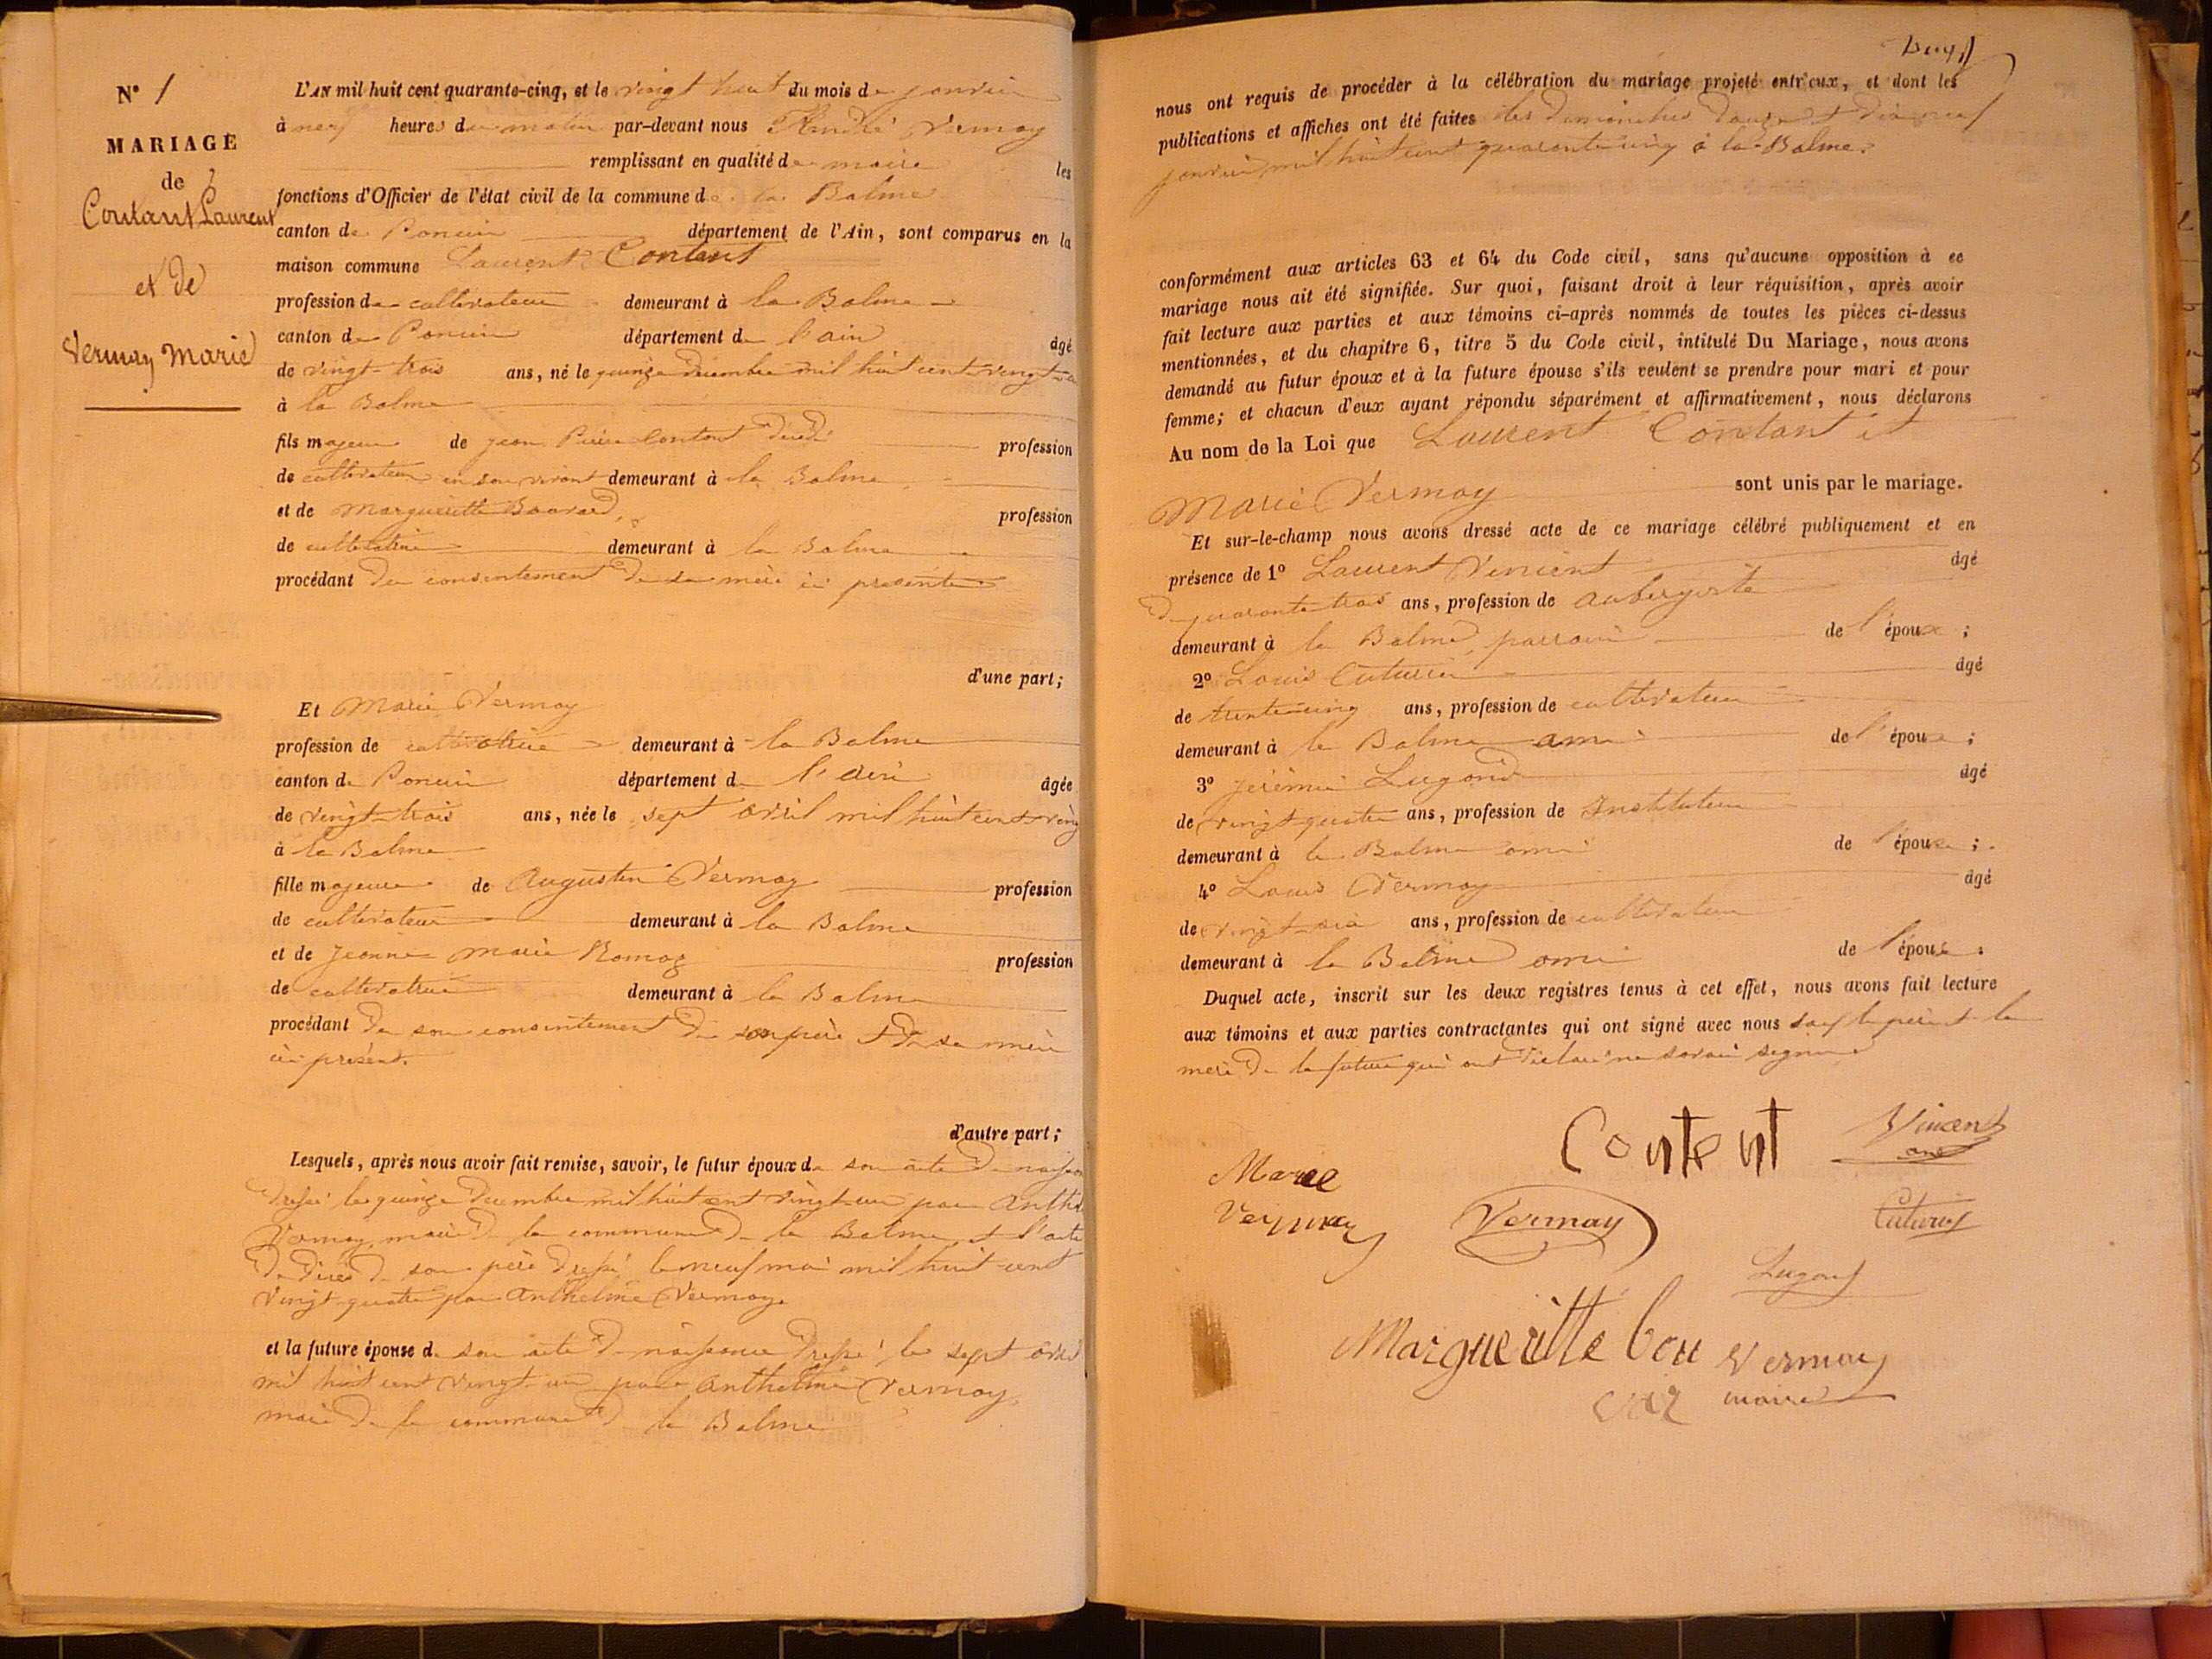 N° 1
MARIAGE
de
Contant Laurent
et de
Vermay Marie
L'AN mil huit cent quarante-cinq, et le vingt huit du mois de janvier
à neuf heures du matin par-devant nous André Vermay
remplissant en qualité de maire les
fonctions d'Officier de l'état civil de la commune de la Balme
canton de Poncin département de l'Ain, sont comparus en la
maison commune Laurent Contant
profession de cultivateur demeurant à la Balme
canton de Poncin département de l'ain âgé
de vingt trois ans, né le quinze décembre mil huit cent vingt-un
à la Balme
fils majeur de jean Pierre Contant décédé profession
de cultivateur en son vivant demeurant à la Balme
et de Margueritte Bouvard, profession
de cultivatrice demeurant à la Balme
procédant du consentement de sa mère ici présente
d'une part;
Et Marie Vermay
profession de cultivatrice demeurant à la Balme
canton de Poncin département de l'ain âgée
de vingt-trois ans, née le sept avril mil huit cent vingt
à la Balme
fille majeure de Augustin Vermay profession
de cultivateur demeurant à la Balme
et de jeanne marie Ramaz profession
de cultivatrice demeurant à la Balme
procédant de son consentement de son père et de sa mère
ici présent.
d'autre part;
Lesquels, après nous avoir fait remise, savoir, le futur époux de son acte de naissance
dressé le quinze décembre mil huit cent vingt-un par Anthelme
Vermay, maire de la commune de la Balme et l'acte
de décès de son père dressé le neuf mai mil huit cent
vingt-quatre par Anthelme Vermay.
et la future épouse de son acte de naissance dressé le sept avril
mil huit cent vingt-un par Anthelme Vermay,
maire de la commune de la Balme
nous ont requis de procéder à la célébration du mariage projeté entr'eux, et dont les
publications et affiches ont été faites les dimanches douze et dix-neuf
janvier mil huit cent quarante-cinq à la Balme.
conformément aux articles 63 et 64 du Code civil, sans qu'aucune opposition à ce
mariage nous ait été signifiée. Sur quoi, faisant droit à leur réquisition, après avoir
fait lecture aux parties et aux témoins ci-après nommés de toutes les pièces ci-dessus
mentionnées, et du chapitre 6, titre 5 du Code civil, intitulé Du Mariage, nous avons
demandé au futur époux et à la future épouse s'ils veulent se prendre pour mari et pour
femme; et chacun d'eux ayant répondu séparément et affirmativement, nous déclarons
Au nom de la Loi que Laurent Contant et
Marie Vermay sont unis par le mariage.
Et sur-le-champ nous avons dressé acte de ce mariage célébré publiquement et en
présence de 1° Laurent Vincent âgé
de quarante trois ans, profession de aubergiste
demeurant à la Balme, parrain de l'époux;
2° Louis Cuturier âgé
de trente-cinq ans, profession de cultivateur
demeurant à la Balme ami de l'époux;
3° jérémie Lugand âgé
de vingt quatre ans, profession de Instituteur
demeurant à la Balme ami de l'épouse;
4° Louis Vermay âgé
de vingt-six ans, profession de cultivateur
demeurant à la Balme ami de l'épouse.
Duquel acte, inscrit sur les deux registres tenus à cet effet, nous avons fait lecture
aux témoins et aux parties contractantes qui ont signé avec nous sauf le père et la
mère de la future qui ont déclaré ne savoir signer
Content
Vincent
Marie
Vermay
Vermay
Cuturier
Lugand
Margueritte bou
Vermay
maire